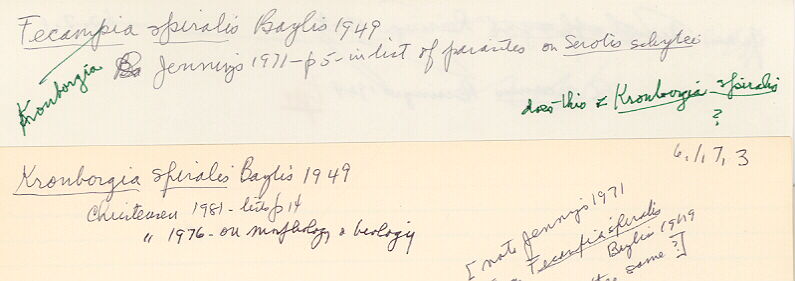 Fecampia spiralis Baylis 1949
Kronborgia
Jennings 1971-p5-in list of parasites on Serolis schytei
does this = Kronborgia spiralis
?
Kronborgia spiralis Baylis 1949
6,1,7,3
Christensen 1981-lists p 14
" 1976-on morphology & biology
[note Jennings 1971
Fecampia spiralis
Baylis 1949
the same?]